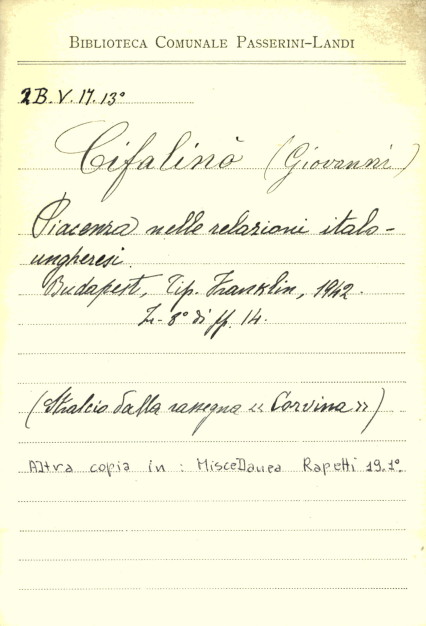 BIBLIOTECA COMUNALE PASSERINI-LANDI
2B.V.17.13°
Cifalinò (Giovanni)
Piacenza nelle relazioni italo-
ungheresi.
Budapest, Tip. Franklin, 1942.
In-8° di ff. 14.
(Stralcio dalla rassegna « Corvina »)
Altra copia in : Miscellanea Rapetti 19.1°